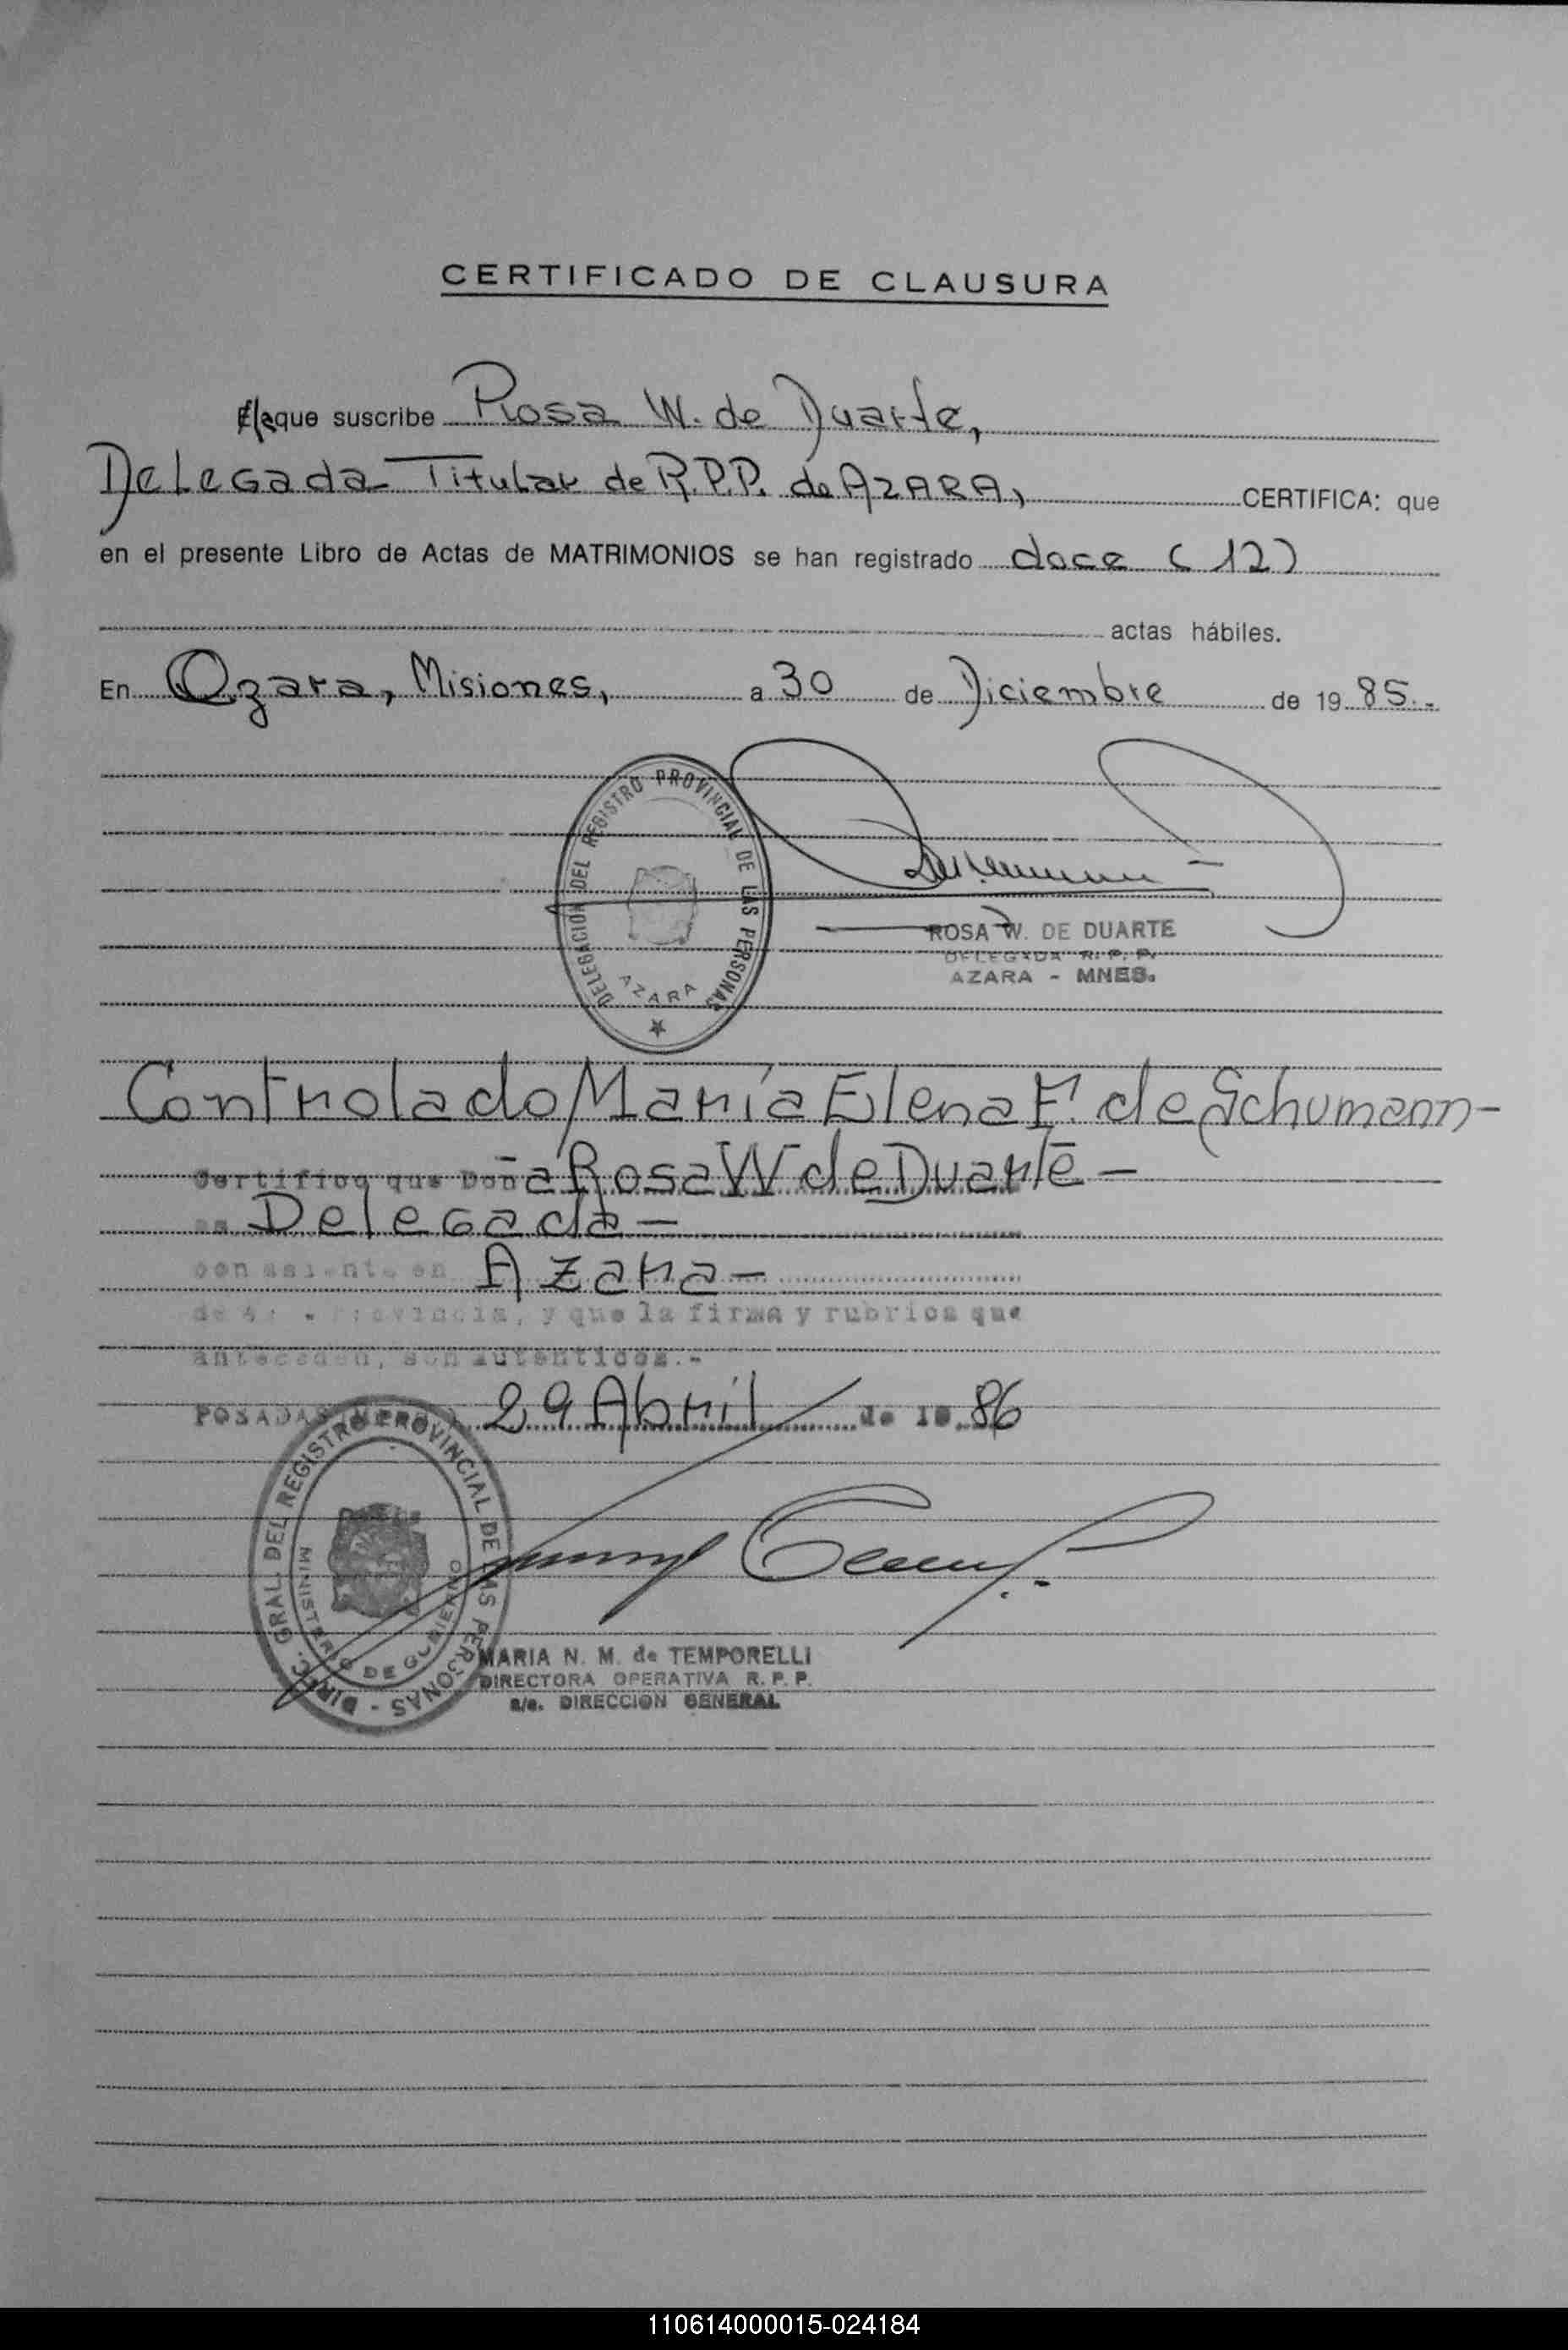 CERTIFICADO DE CLAUSURA
La que suscribe Rosa W. de Duarte,
Delegada Titular de R.P.P. de AZARA, CERTIFICA: que
en el presente Libro de Actas de MATRIMONIOS se han registrado doce (12)
actas hábiles.
En Azara, Misiones, a 30 de Diciembre de 1985.-
DELEGACIÓN DEL REGISTRO PROVINCIAL DE LAS PERSONAS
AZARA
ROSA W. DE DUARTE
DELEGADA R. P. P.
AZARA - MNES.
Controlado María Elena F. de Schumann-
Certifico que Doña Rosa W de Duarte-
es Delegada-
con asiento en Azara-
de la Provincia, y que la firma y rubrica que
anteceden, son autenticos.-
POSADAS 29 Abril de 1986
DIREC. GRAL. DEL REGISTRO PROVINCIAL DE LAS PERSONAS -
MINISTERIO DE GOBIERNO
MARIA N. M. de TEMPORELLI
DIRECTORA OPERATIVA R. P. P.
a/c. DIRECCION GENERAL
110614000015-024184